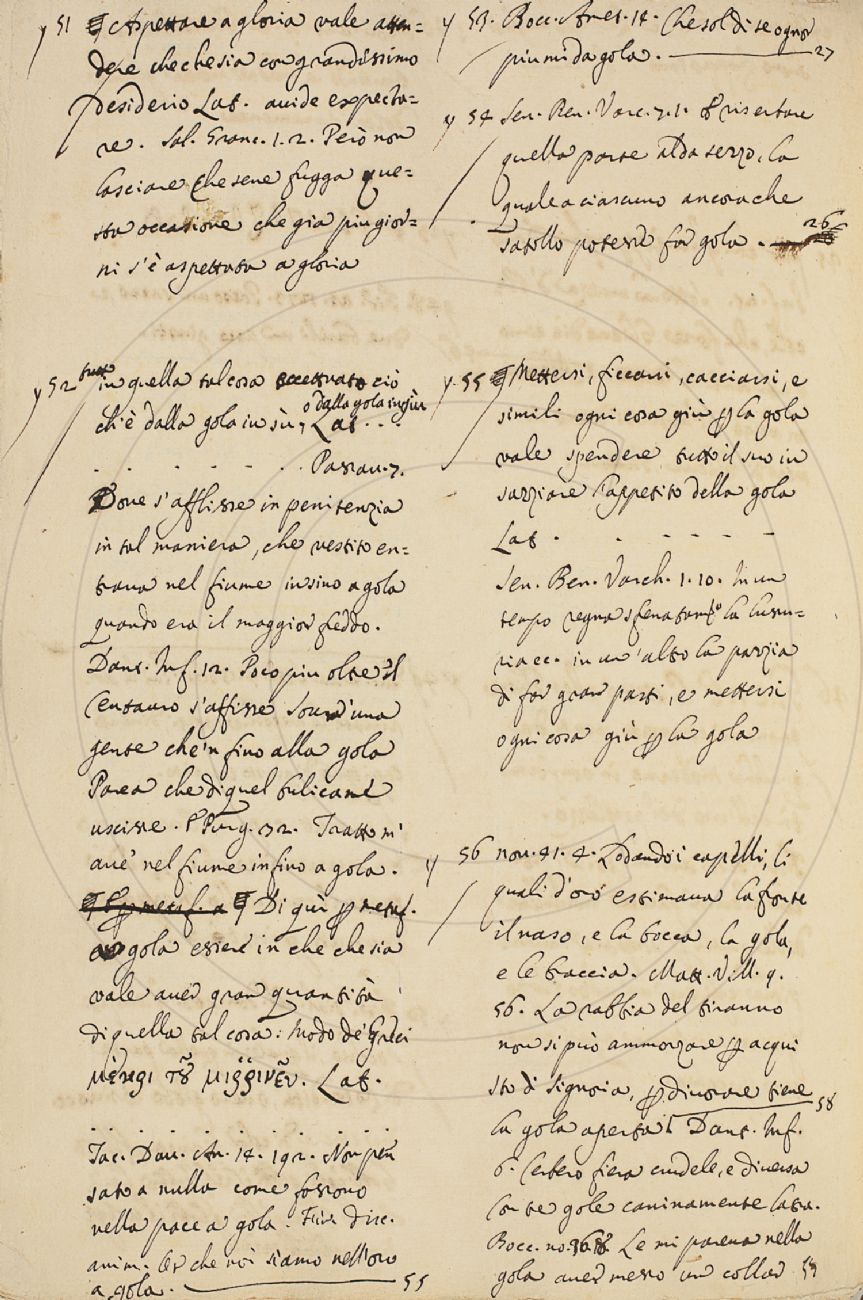 y 51 ¶ Aspettare a gloria vale atten=
dere che che sia con grandissimo
desiderio Lat. avide expecta=
re. Sal. Granc. 1. 2. Però non
lasciare che sene fugga que=
sta occasione che gia piu gior=
ni s'è aspettata a gloria
y 52 tutto in quella tal cosa eccettuato ciò
ch'è dalla gola in sù, o dalla gola in giù Lat. . .
. . . . . . . Passav. 7.
Dove s'afflisse in penitenzia
in tal maniera, che vestito en=
trava nel fiume insino a gola
quando era il maggior freddo.
Dant. Inf. 12. Poco piu oltre 'l
Centauro s'affisse Sovr' una
gente che 'n fino alla gola
Parea che di quel bulicame
uscisse. E Purg. 32. Tratto m'
avè nel fiume infino a gola.
¶ Di quì p metaf.
a gola essere in che che sia
vale aver gran quantità
di quella tal cosa: modo de' Greci
Lat.
. . . . . . . .
Tac. Dav. An. 14. 192. Non pen
sato a nulla come fossono
nella pace a gola. Fir. disc.
anim. Or che noi siamo nell'oro
a gola. 55
y 53. Bocc. Amet. 14. Che sol di se ognor
piu mi da gola. 27
y 54 Sen. Ben. Varc. 7. 1. E riserbare
quella parte alda sezzo, la
quale a ciascuno ancora che
satollo potesse far gola. 26
y 55 ¶ Mettersi, ficcarsi, cacciarsi, e
simili ogni cosa giù p la gola
vale spendere tutto il suo in
saziare l'appetito della gola
Lat . . . . . .
Sen. Ben. Varch. 1. 10. In un
tempo regna sfenatamte la lussu=
ria ec. in un' altro la pazzia
di far gran pasti, e mettersi
ogni cosa giù p la gola
y 56 nov. 41. 4. Lodando i capelli, li
quali d'oro estimava la fronte
il naso, e la bocca, la gola,
e le braccia. Matt. Vill. 9.
56. La rabbia del tiranno
non si può ammorzare p acqui
sto di signoria, p divorare tiene 58
la gola aperta Dant. Inf.
6. Cerbero fiera crudele, e diversa
Con tre gole caninamente latra.
Bocc. no. Le mi pareva nella
gola aver messo un collar 59